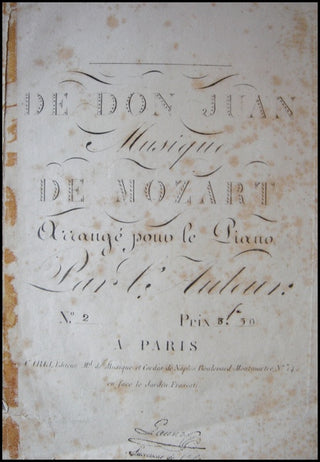 DE DON JUAN
Musique
DE MOZART
Arrangé pour le Piano
Par l'Auteur.
N.º 2 Prix
À PARIS
Editeur M.d de Musique et Cordes de Naples Boulevard Montmartre N.º
en face le Jardin Frascati